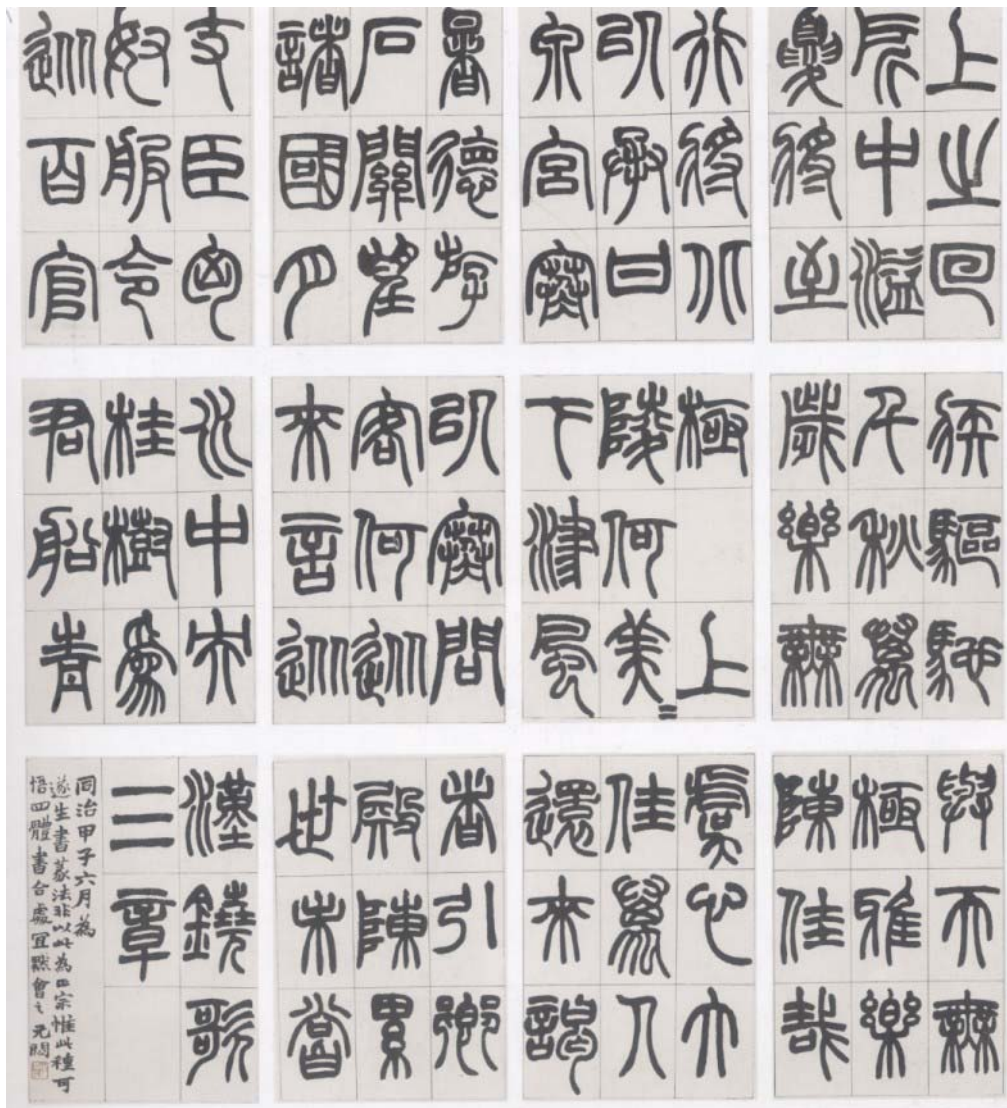 上之回
所中溢
夏將至
行將北
以承甘
泉宮寒
暑德游
石關望
諸國月
支臣匈
奴服令
從百官
疾驅馳
千秋萬
歲樂無
極 上
陵何美〻
下津風
以寒問
客何從
來言從
水中央
桂樹為
君船青
與天無
極雅樂
陳佳哉
虞心大
佳萬人
還來謁
者引鄉
殿陳累
世未嘗
漢鐃歌
三章
同治甲子六月為
遂生書篆法非以此為正宗惟此種可
悟四體書合處宜默會之无悶